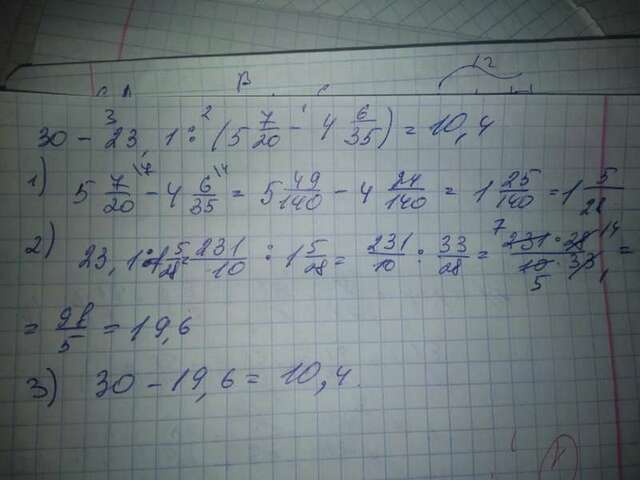 12
В
30 - 23,1 : (5 7/20 - 4 6/35) = 10,4
1) 5 7/20 - 4 6/35 = 5 49/140 - 4 24/140 = 1 25/140 = 1 5/28
2) 23,1 : 1 5/28 = 231/10 : 1 5/28 = 231/10 : 33/28 = 231 · 28 / 10 · 33 =
= 98/5 = 19,6
3) 30 - 19,6 = 10,4.